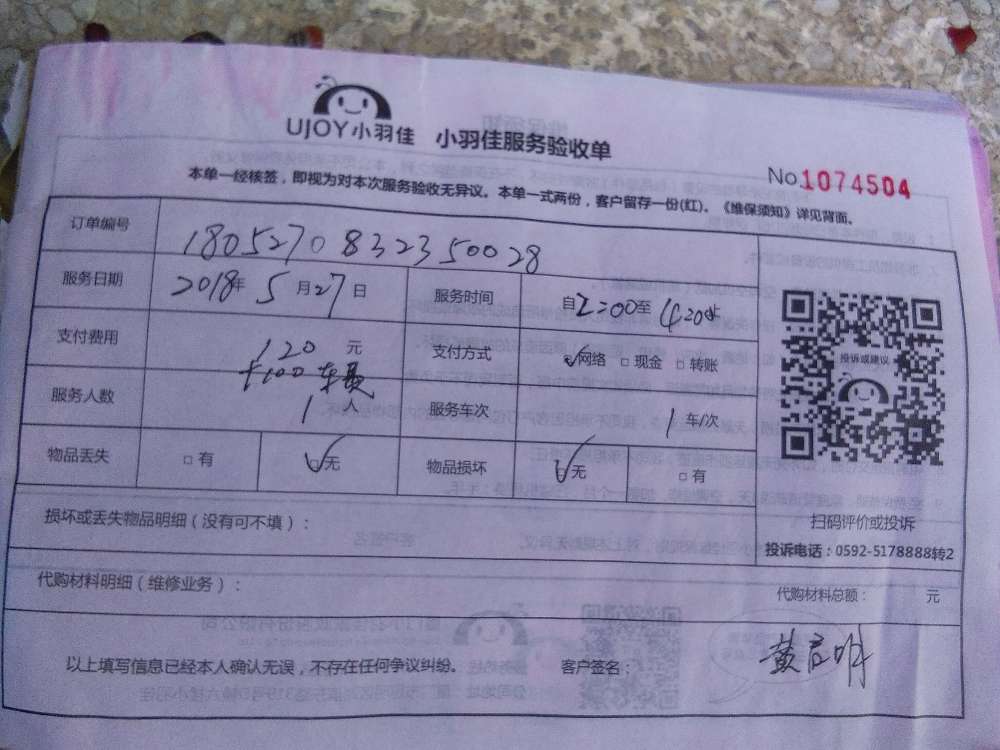 UJOY小羽佳 小羽佳服务验收单
No.1074504
本单一经核签，即视为对本次服务验收无异议。本单一式两份，客户留存一份(红)。《维保须知》详见背面。
订单编号 180527083235 0028
服务日期 2018年 5 月 27 日 服务时间 自 2:00 至
支付费用 120 元 支付方式 网络 现金 转账
+100 车费
服务人数 1 人 服务车次 1 车/次
物品丢失 有 无 物品损坏 无 有
投诉或建议
扫码评价或投诉
投诉电话：0592-5178888转2
损坏或丢失物品明细（没有可不填）：
代购材料明细（维修业务）： 代购材料总额： 元
以上填写信息已经本人确认无误，不存在任何争议纠纷。 客户签名：